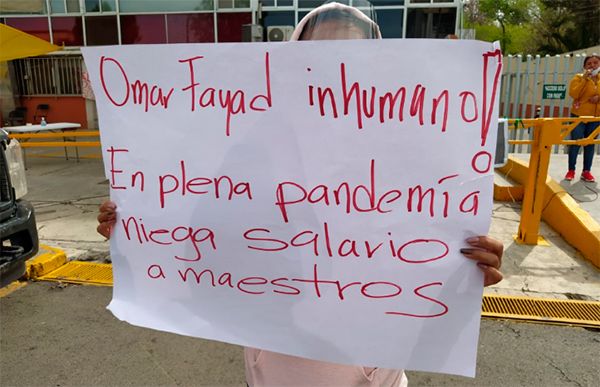 Omar Fayad inhumano!
En plena pandemía
niega salario
a maestros